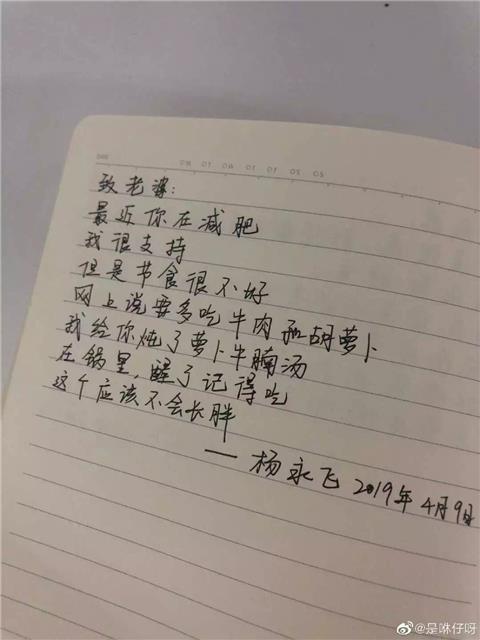 致老婆:
最近你在减肥
我很支持
但是节食很不好
网上说要多吃牛肉和胡萝卜
我给你炖了萝卜牛腩汤
在锅里,醒了记得吃
这个应该不会长胖
——杨永飞 2019年4月9日
@是咻仔呀